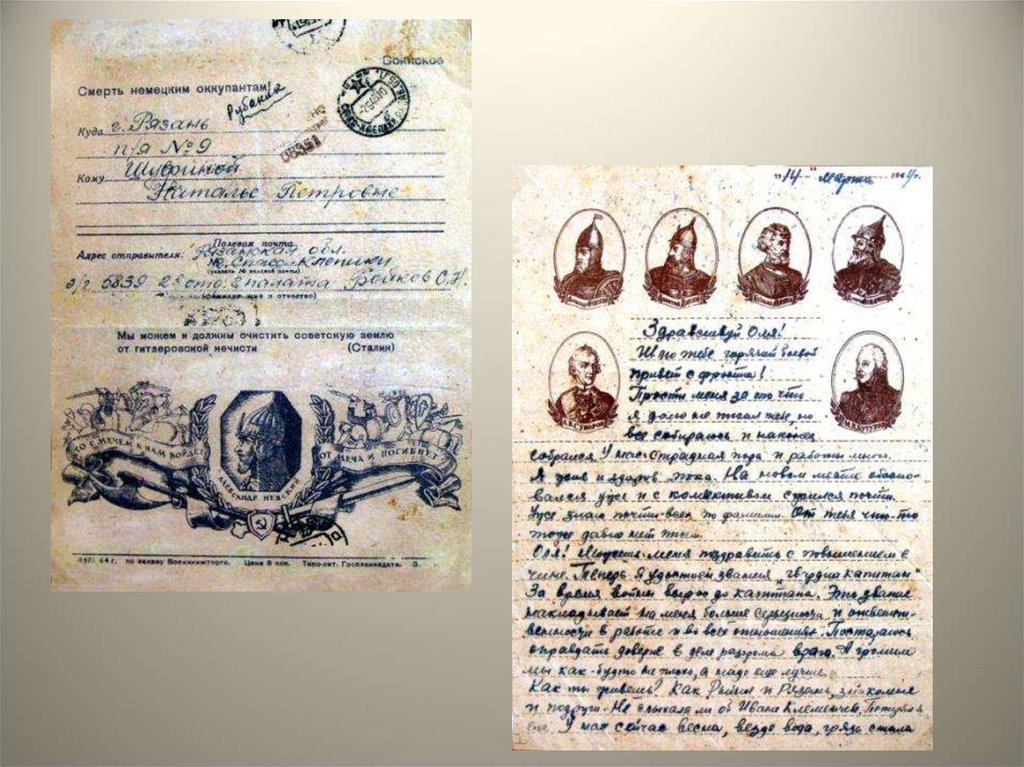 Воинское
Смерть немецким оккупантам!
Рубаний
Куда г. Рязань
п.я №9
Кому Шуриной
Наталье Петровне
Полевая почта
Адрес отправителя: Рязанская обл.
Спасо-Клепики
(указать № полевой почты)
5839 2е отд. палата Бойков С.Н.
(фамилия имя и отчество)
Мы можем и должны очистить советскую землю
от гитлеровской нечисти (Сталин)
КТО С МЕЧЕМ К НАМ ВОЙДЕТ ОТ МЕЧА И ПОГИБНЕТ
АЛЕКСАНДР НЕВСКИЙ
44 г. по заказу Военкниготорга. Цена 8 коп. Типо-лит. Госпланиздата.
"14" марта
Здравствуй Оля!
Шлю тебе горячий боевой
привет с фронта!
Прости меня за то что
я долго не писал тебе, но
все собираюсь и наконец
А.В.СУВОРОВ
М.И.КУТУЗОВ
собрался. У нас страдная пора и работы много.
Я жив и здоров пока. На новом месте обосно-
вался уже и с коллективом сжился почти.
Уже знаю почти всех по фамилии. От тебя что-то
тоже давно нет писем.
Оля! Можешь меня поздравить с повышением в
чине. Теперь я удостоен звания "гвардии капитан"
За время войны вырос до капитана. Это звание
накладывает на меня больше серьезности и ответст-
венности в работе и во всех отношениях. Постараюсь
оправдать доверие в деле разгрома врага. А громим
мы как-будто не плохо, а надо еще лучше.
Как ты живешь? Как Рыбное и Рязань, знакомые
и подруги. Не слыхала ли об Иване Клемениче,
У нас сейчас весна, везде вода, грязь стала